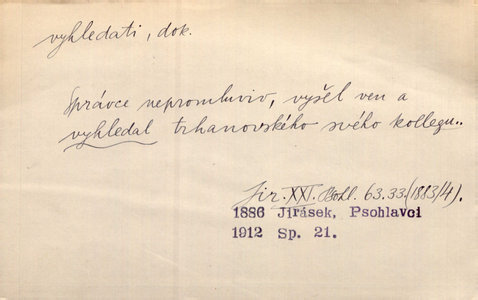 vyhledati, dok.
Správce nepromluviv, vyšel ven a
vyhledal trhanovského svého kollegu..
Jir. XXI. Psohl. 63.33.(1883/4).
1886 Jirásek, Psohlavci
1912 Sp. 21.